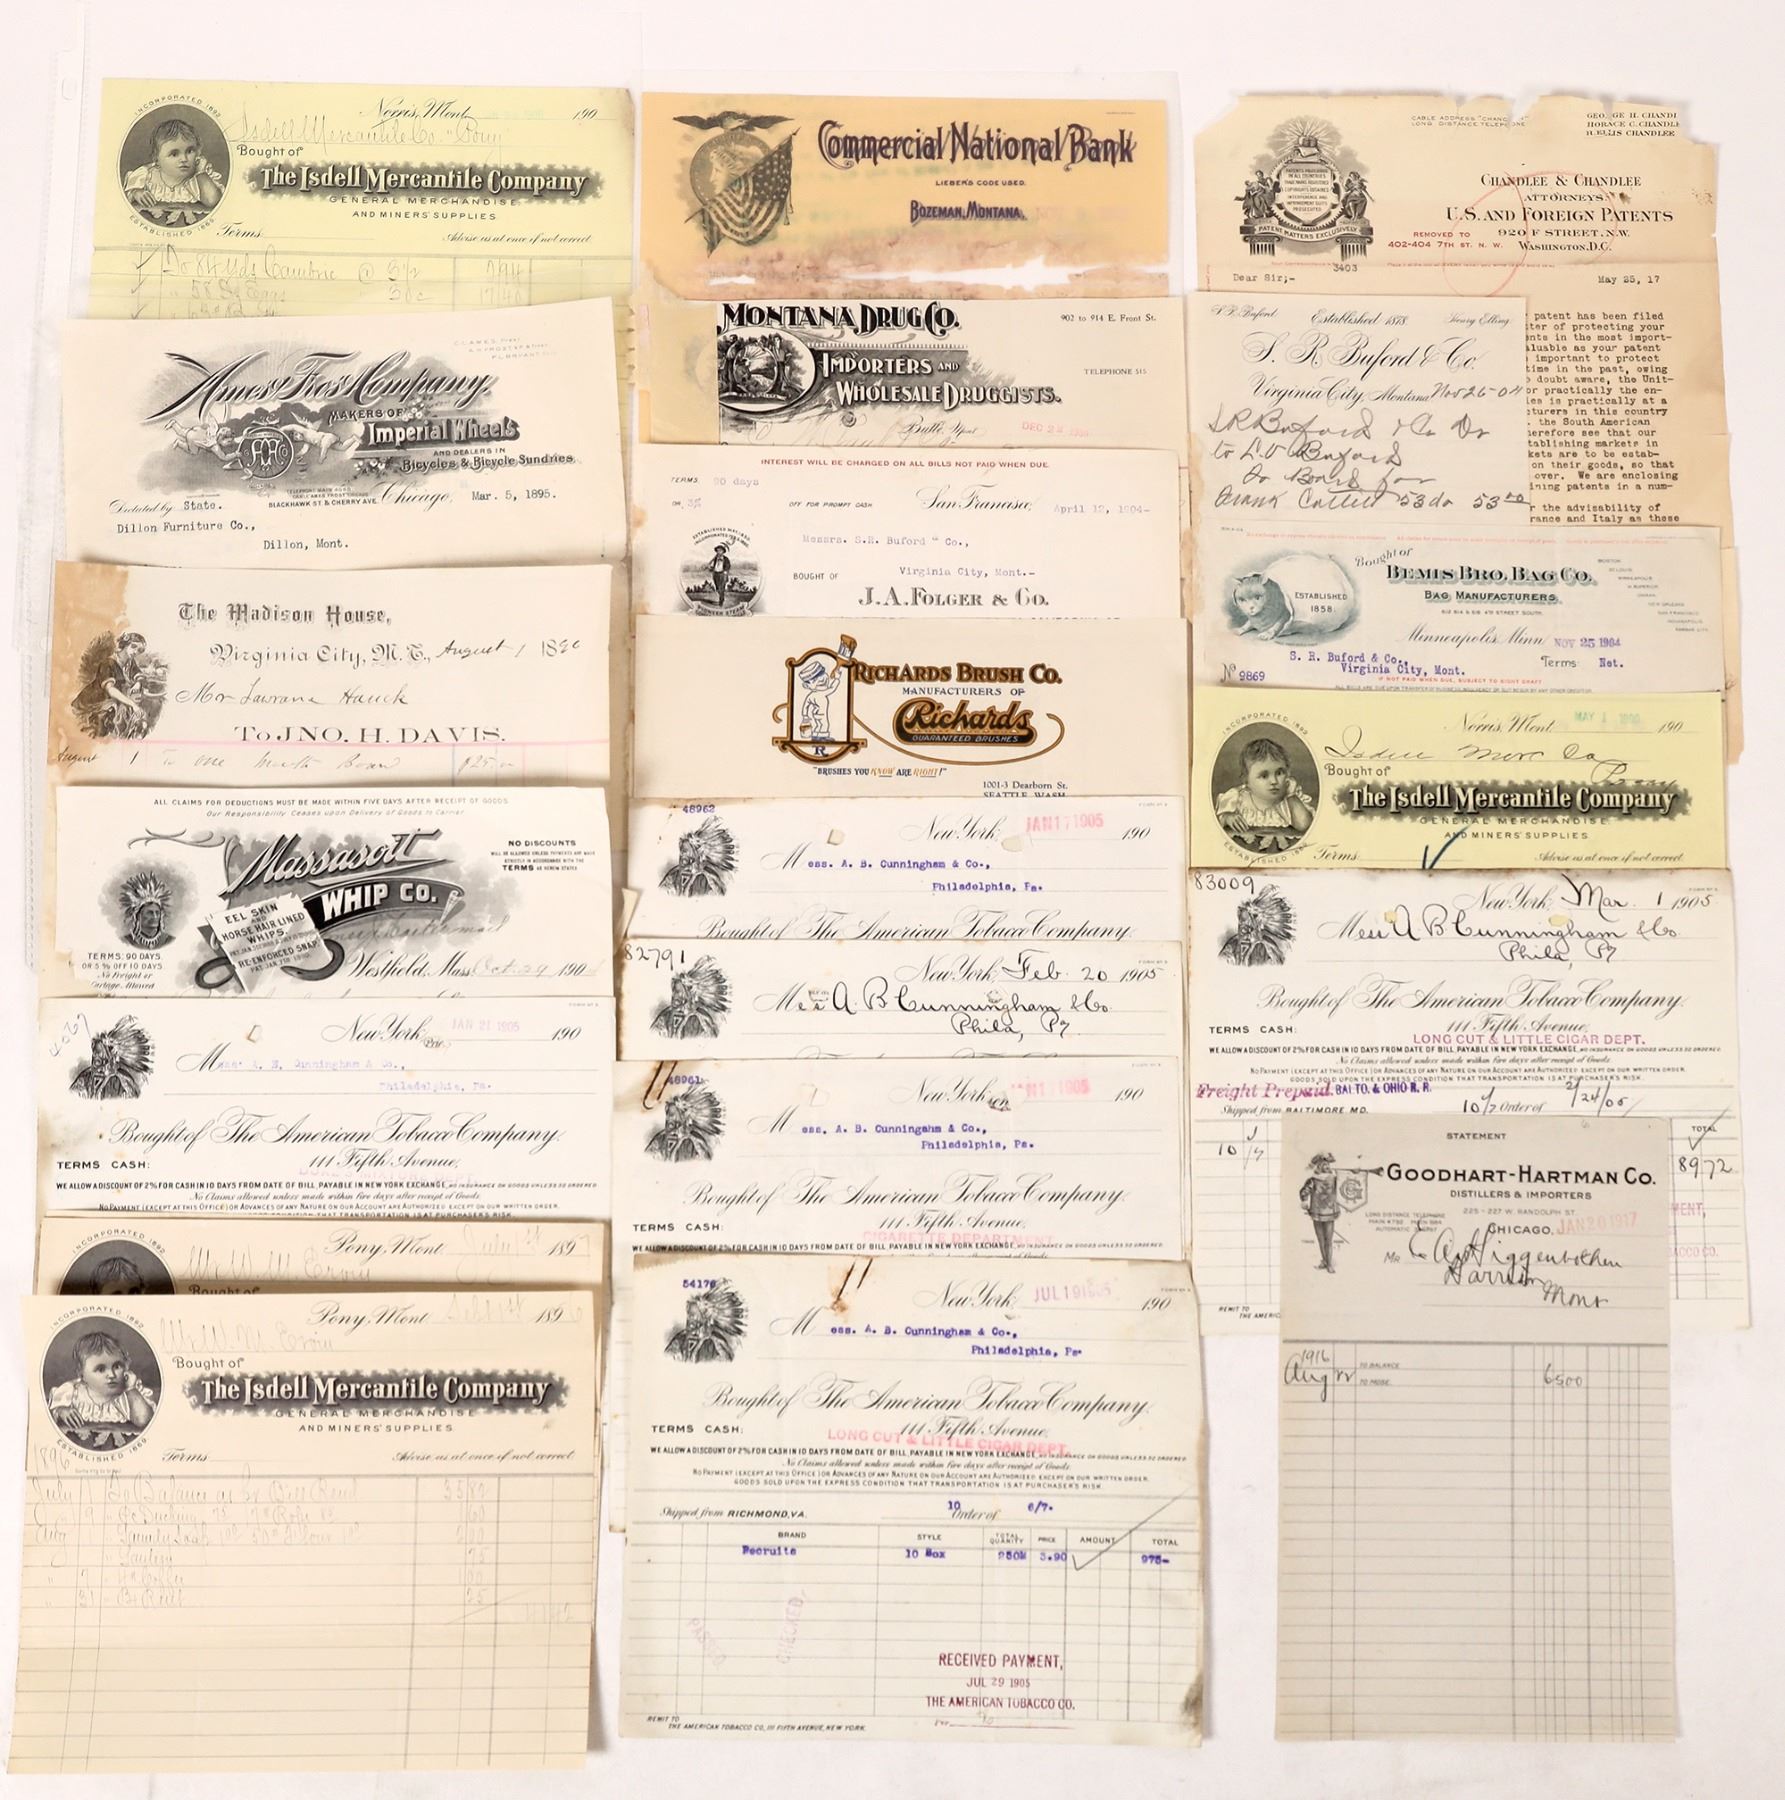 INCORPORATED 1892
ESTABLISHED 1869
Norris, Mont. 190
Isdell Mercantile Co. "Pony"
Bought of
The Isdell Mercantile Company
GENERAL MERCHANDISE
AND MINERS' SUPPLIES
Terms: Advise us at once if not correct.
To 84 yds Cambric @ 3½ 294
Ames & Frost Company,
MAKERS OF
Imperial Wheels
AND DEALERS IN
Bicycles & Bicycle Sundries.
BLACKHAWK ST. & CHERRY AVE. Chicago, Mar. 5, 1895.
Dictated by State.
Dillon Furniture Co.,
Dillon, Mont.
The Madison House,
Virginia City, M. T., August 1 18
To JNO. H. DAVIS.
August 1 To one Month Board $25.00
ALL CLAIMS FOR DEDUCTIONS MUST BE MADE WITHIN FIVE DAYS AFTER RECEIPT OF GOODS
Our Responsibility Ceases upon Delivery of Goods to Carrier
Massasoit
WHIP CO.
NO DISCOUNTS
WILL BE ALLOWED UNLESS PAYMENTS ARE MADE
STRICTLY IN ACCORDANCE WITH THE
TERMS AS HEREIN STATED
EEL SKIN
AND
HORSE HAIR LINED
WHIPS.
RE-ENFORCED SNAP.
TERMS: 90 DAYS
OR 5% OFF 10 DAYS
No Freight or
Cartage Allowed
Westfield, Mass. Oct. 29 190
New York, JAN 21 1905 190
Mess. A. B. Cunningham & Co.,
Philadelphia, Pa.
Bought of The American Tobacco Company,
TERMS CASH: 111 Fifth Avenue,
WE ALLOW A DISCOUNT OF 2% FOR CASH IN 10 DAYS FROM DATE OF BILL, PAYABLE IN NEW YORK EXCHANGE, NO INSURANCE ON GOODS UNLESS SO ORDERED
No Claims allowed unless made within five days after receipt of Goods.
NO PAYMENT (EXCEPT AT THIS OFFICE) OR ADVANCES OF ANY NATURE ON OUR ACCOUNT ARE AUTHORIZED EXCEPT ON OUR WRITTEN ORDER.
INCORPORATED 1892
Pony, Mont. July 1st 1897
Mr W. M. Ervin
Bought of
INCORPORATED 1892
ESTABLISHED 1869
Pony, Mont. Sept 1st 1896
Mr W. M. Ervin
Bought of
The Isdell Mercantile Company
GENERAL MERCHANDISE
AND MINERS' SUPPLIES
Terms: Advise us at once if not correct.
1896
July 1 To Balance as per Bill Rend 35 82
Commercial National Bank
LIEBER'S CODE USED.
BOZEMAN, MONTANA,
MONTANA DRUG CO.
902 to 914 E. Front St.
IMPORTERS AND
WHOLESALE DRUGGISTS.
TELEPHONE 515
Butte, Mont.
INTEREST WILL BE CHARGED ON ALL BILLS NOT PAID WHEN DUE.
TERMS, 90 days
OR 3% OFF FOR PROMPT CASH San Francisco, April 12, 1904-
Messrs. S.R. Buford " Co.,
Virginia City, Mont.-
BOUGHT OF
J. A. FOLGER & CO.
PIONEER STEAM
RICHARDS BRUSH CO.
MANUFACTURERS OF
Richards
GUARANTEED BRUSHES
R
"BRUSHES YOU KNOW ARE RIGHT!"
1001-3 Dearborn St.
SEATTLE, WASH.
48962
New York, JAN 17 1905 190
Mess. A. B. Cunningham & Co.,
Philadelphia, Pa.
Bought of The American Tobacco Company,
82791
New York, Feb. 20 1905
Mess A B Cunningham & Co.
Phila, Pa
48961
New York, JAN 17 1905 190
Mess. A. B. Cunningahm & Co.,
Philadelphia, Pa.
Bought of The American Tobacco Company,
TERMS CASH: 111 Fifth Avenue,
CIGARETTE DEPARTMENT
WE ALLOW A DISCOUNT OF 2% FOR CASH IN 10 DAYS FROM DATE OF BILL, PAYABLE IN NEW YORK EXCHANGE, NO INSURANCE ON GOODS UNLESS SO ORDERED
54176
New York, JUL 19 1905 190
Mess. A. B. Cunningham & Co.,
Philadelphia, Pa.
Bought of The American Tobacco Company,
TERMS CASH: 111 Fifth Avenue,
LONG CUT & LITTLE CIGAR DEPT.
WE ALLOW A DISCOUNT OF 2% FOR CASH IN 10 DAYS FROM DATE OF BILL, PAYABLE IN NEW YORK EXCHANGE, NO INSURANCE ON GOODS UNLESS SO ORDERED
No Claims allowed unless made within five days after receipt of Goods.
NO PAYMENT (EXCEPT AT THIS OFFICE) OR ADVANCES OF ANY NATURE ON OUR ACCOUNT ARE AUTHORIZED EXCEPT ON OUR WRITTEN ORDER.
GOODS SOLD UPON THE EXPRESS CONDITION THAT TRANSPORTATION IS AT PURCHASER'S RISK.
Shipped from RICHMOND, VA. 10 Order of 6/7.
BRAND STYLE TOTAL QUANTITY PRICE AMOUNT TOTAL
Recruits 10 Box 250M 3.90 975-
PASSED
CHECKED
RECEIVED PAYMENT,
JUL 29 1905
THE AMERICAN TOBACCO CO.
REMIT TO
THE AMERICAN TOBACCO CO., 111 FIFTH AVENUE, NEW YORK.
CABLE ADDRESS "CHANDLEE"
LONG DISTANCE TELEPHONE
HORACE C. CHANDLEE
CHANDLEE & CHANDLEE
ATTORNEYS.
U.S. AND FOREIGN PATENTS
PATENT MATTERS EXCLUSIVELY
REMOVED TO
402-404 7TH ST. N. W.
920 F STREET, N.W.
WASHINGTON, D.C.
3403
Dear Sir;- May 25, 17
patent has been filed
ter of protecting your
nts in the most import-
luable as your patent
important to protect
time in the past, owing
doubt aware, the Unit-
or practically the en-
les is practically at a
cturers in this country
. the South American
erefore see that our
tablishing markets in
kets are to be estab-
on their goods, so that
over. We are enclosing
ining patents in a num-
r the advisability of
rance and Italy as these
S. R. Buford. Established 1878. Henry Elling.
S. R. Buford & Co.
Virginia City, Montana Nov 26-04
S R Buford & Co Dr
to
To Board for
53 00
Bought of
BEMIS BRO. BAG CO.
BAG MANUFACTURERS.
ESTABLISHED
1858.
612 614 & 616 4TH STREET SOUTH.
BOSTON
ST. LOUIS
MINNEAPOLIS
W. SUPERIOR
OMAHA
NEW ORLEANS
SAN FRANCISCO
INDIANAPOLIS
KANSAS CITY
Minneapolis, Minn. NOV 25 1904
S. R. Buford & Co.,
Virginia City, Mont.
Terms: Net.
No 9869
IF NOT PAID WHEN DUE, SUBJECT TO SIGHT DRAFT
INCORPORATED 1892
ESTABLISHED 1869
Norris, Mont. MAY 1 190
Isdell Merc Co
Bought of
The Isdell Mercantile Company
GENERAL MERCHANDISE
AND MINERS' SUPPLIES
Terms: Advise us at once if not correct.
83009
New York, Mar. 1 1905
Mess A B Cunningham & Co.
Phila, Pa
Bought of The American Tobacco Company,
TERMS CASH: 111 Fifth Avenue,
LONG CUT & LITTLE CIGAR DEPT.
WE ALLOW A DISCOUNT OF 2% FOR CASH IN 10 DAYS FROM DATE OF BILL, PAYABLE IN NEW YORK EXCHANGE, NO INSURANCE ON GOODS UNLESS SO ORDERED
No Claims allowed unless made within five days after receipt of Goods.
NO PAYMENT (EXCEPT AT THIS OFFICE) OR ADVANCES OF ANY NATURE ON OUR ACCOUNT ARE AUTHORIZED EXCEPT ON OUR WRITTEN ORDER.
GOODS SOLD UPON THE EXPRESS CONDITION THAT TRANSPORTATION IS AT PURCHASER'S RISK.
Freight Prepaid. BALTO. & OHIO R. R.
Shipped from BALTIMORE, MD. Order of 2/24/05
TOTAL
89 72
REMIT TO
THE AMERIC
STATEMENT
GOODHART-HARTMAN CO.
DISTILLERS & IMPORTERS
225-227 W. RANDOLPH ST.
LONG DISTANCE TELEPHONE
CHICAGO, JAN 20 1917
MR
Mont
1916
Aug 22 TO BALANCE
TO MDSE. 6500